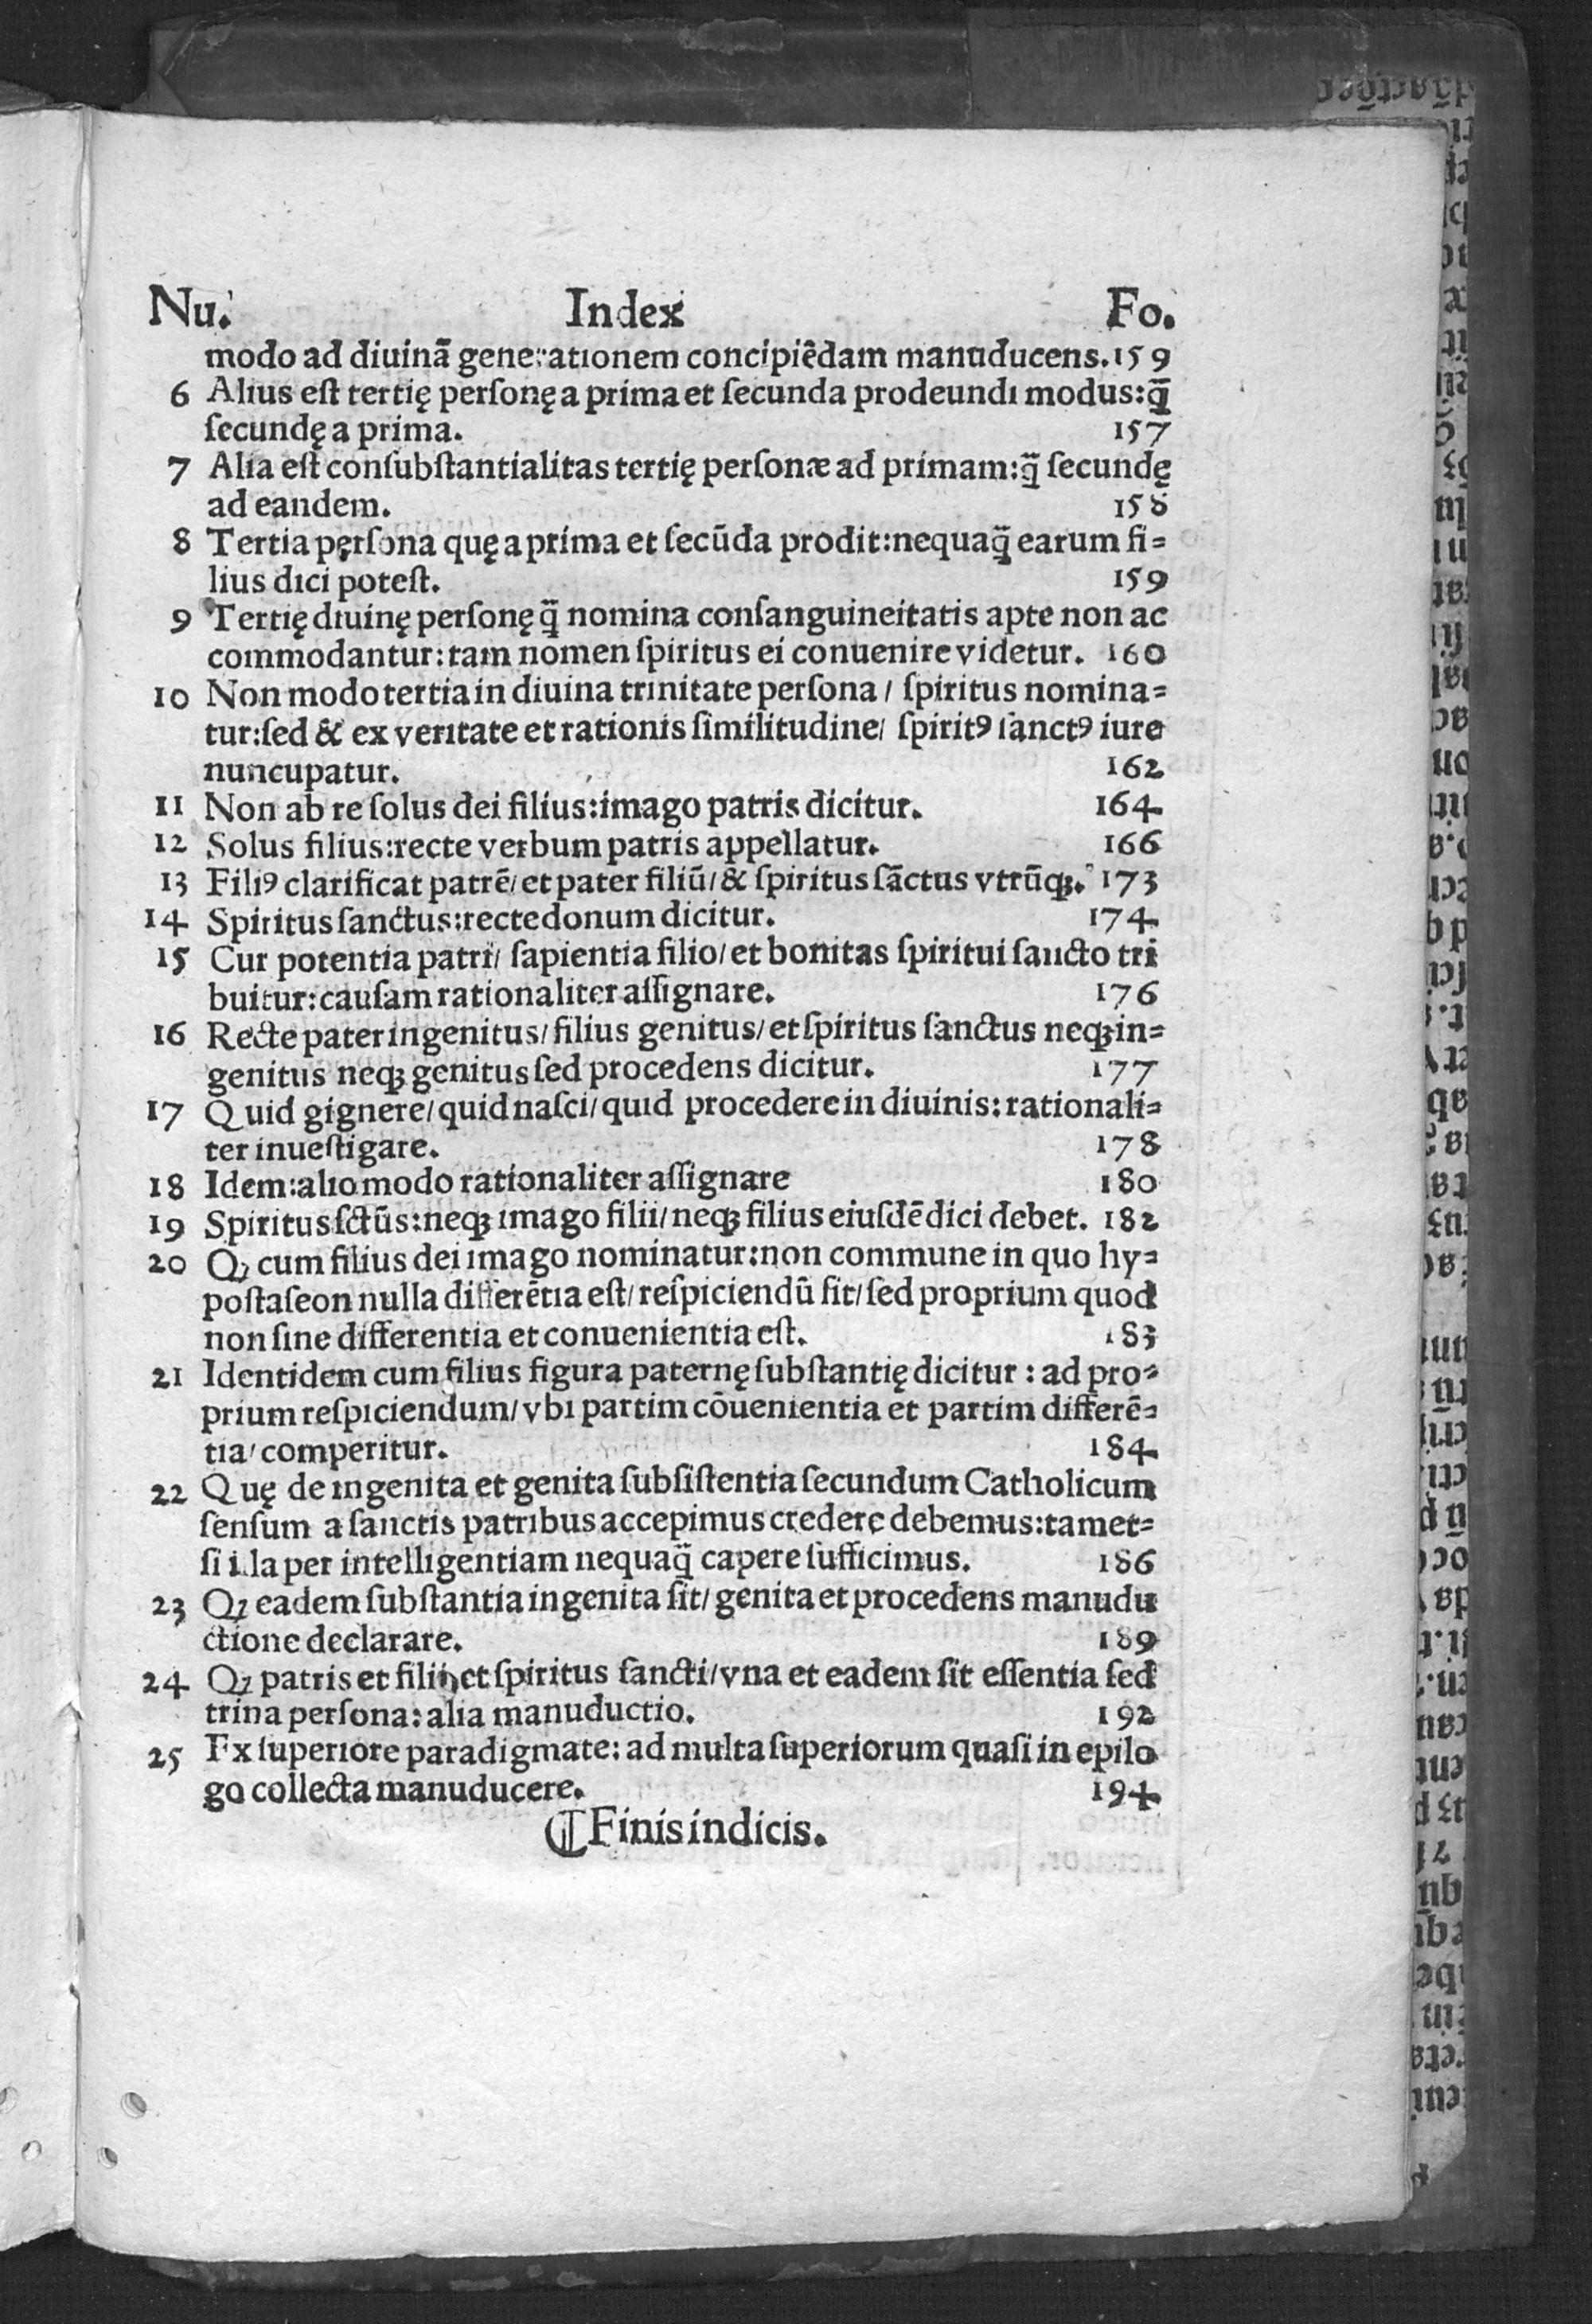 Nu. Index Fo.
modo ad diuinā generationem concipiēdam manuducens. 159
6 Alius est tertię personę a prima et secunda prodeundi modus: q̄
secundę a prima. 157
7 Alia est consubstantialitas tertię personæ ad primam: q̄ secundę
ad eandem. 158
8 Tertia pęrsona quę a prima et secūda prodit: nequaq̄ earum fi=
lius dici potest. 159
9 Tertię diuinę personę q̄ nomina consanguineitatis apte non ac
commodantur: tam nomen spiritus ei conuenire videtur. 160
10 Non modo tertia in diuina trinitate persona / spiritus nomina=
tur: sed & ex veritate et rationis similitudine / spiritꝰ sanctꝰ iure
nuncupatur. 162
11 Non ab re solus dei filius: imago patris dicitur. 164
12 Solus filius: recte verbum patris appellatur. 166
13 Filiꝰ clarificat patrē / et pater filiū / & spiritus sāctus vtrūqꝫ. 173
14 Spiritus sanctus: recte donum dicitur. 174
15 Cur potentia patri / sapientia filio / et bonitas spiritui sancto tri
buitur: causam rationaliter assignare. 176
16 Recte pater ingenitus / filius genitus / et spiritus sanctus neqꝫ in=
genitus neqꝫ genitus sed procedens dicitur. 177
17 Quid gignere / quid nasci / quid procedere in diuinis: rationali=
ter inuestigare. 178
18 Idem: alio modo rationaliter assignare 180
19 Spiritus sctūs: neqꝫ imago filii / neqꝫ filius eiusdē dici debet. 182
20 Qꝫ cum filius dei imago nominatur: non commune in quo hy=
postaseon nulla differētia est / respiciendū sit / sed proprium quod
non sine differentia et conuenientia est. 183
21 Identidem cum filius figura paternę substantię dicitur : ad pro=
prium respiciendum / vbi partim cōuenientia et partim differē=
tia / comperitur. 184
22 Quę de ingenita et genita subsistentia secundum Catholicum
sensum a sanctis patribus accepimus credere debemus: tamet=
si illa per intelligentiam nequaq̄ capere sufficimus. 186
23 Qꝫ eadem substantia ingenita sit / genita et procedens manudu
ctione declarare. 189
24 Qꝫ patris et filii et spiritus sancti / vna et eadem sit essentia sed
trina persona: alia manuductio. 192
25 Ex superiore paradigmate: ad multa superiorum quasi in epilo
go collecta manuducere. 194
¶ Finis indicis.